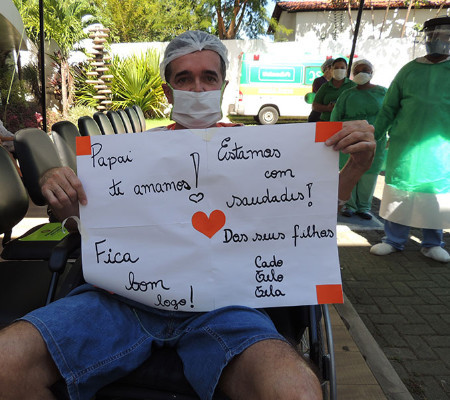 Papai
te amamos!
Estamos
com
saudades!
Fica
bom
logo!
Dos seus filhos
Cado
Tulo
Tula